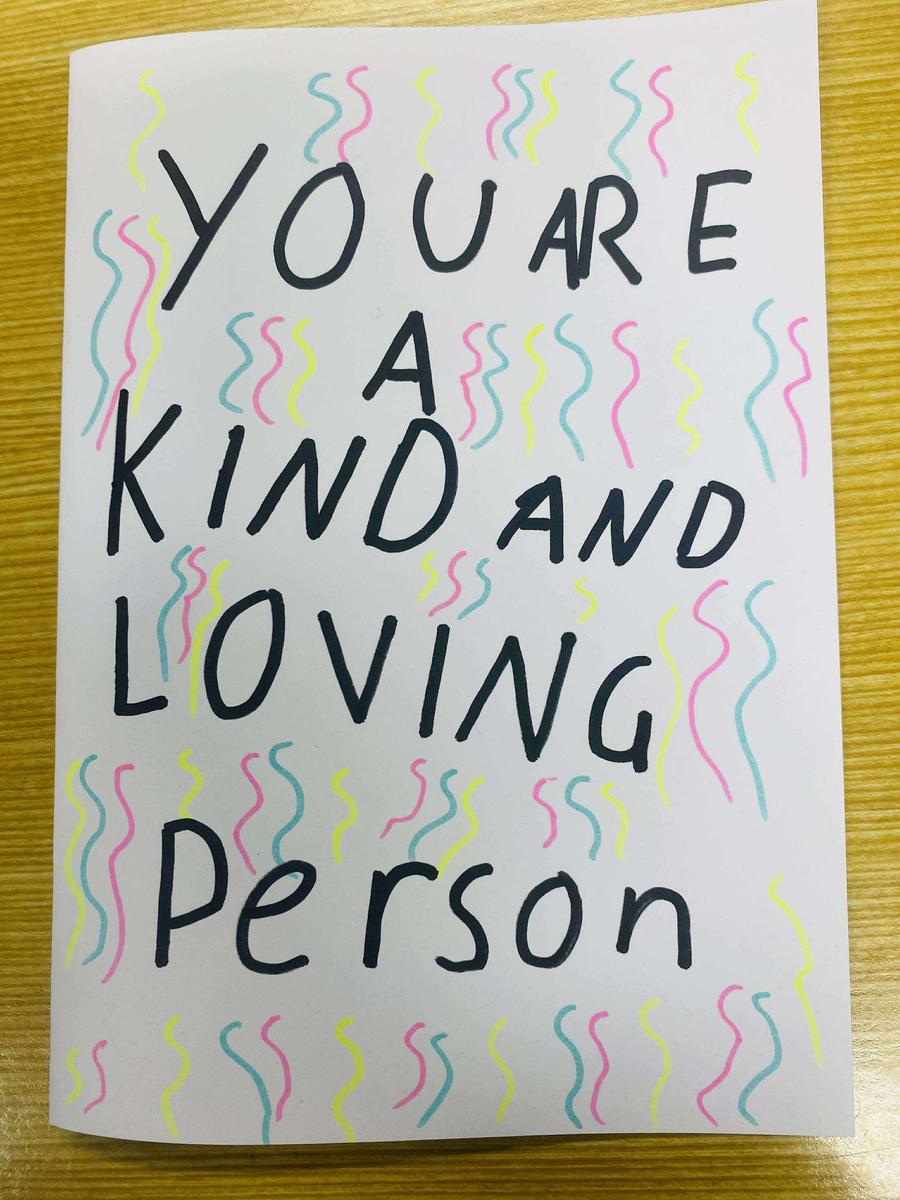 YOU ARE
A
KIND AND
LOVING
Person